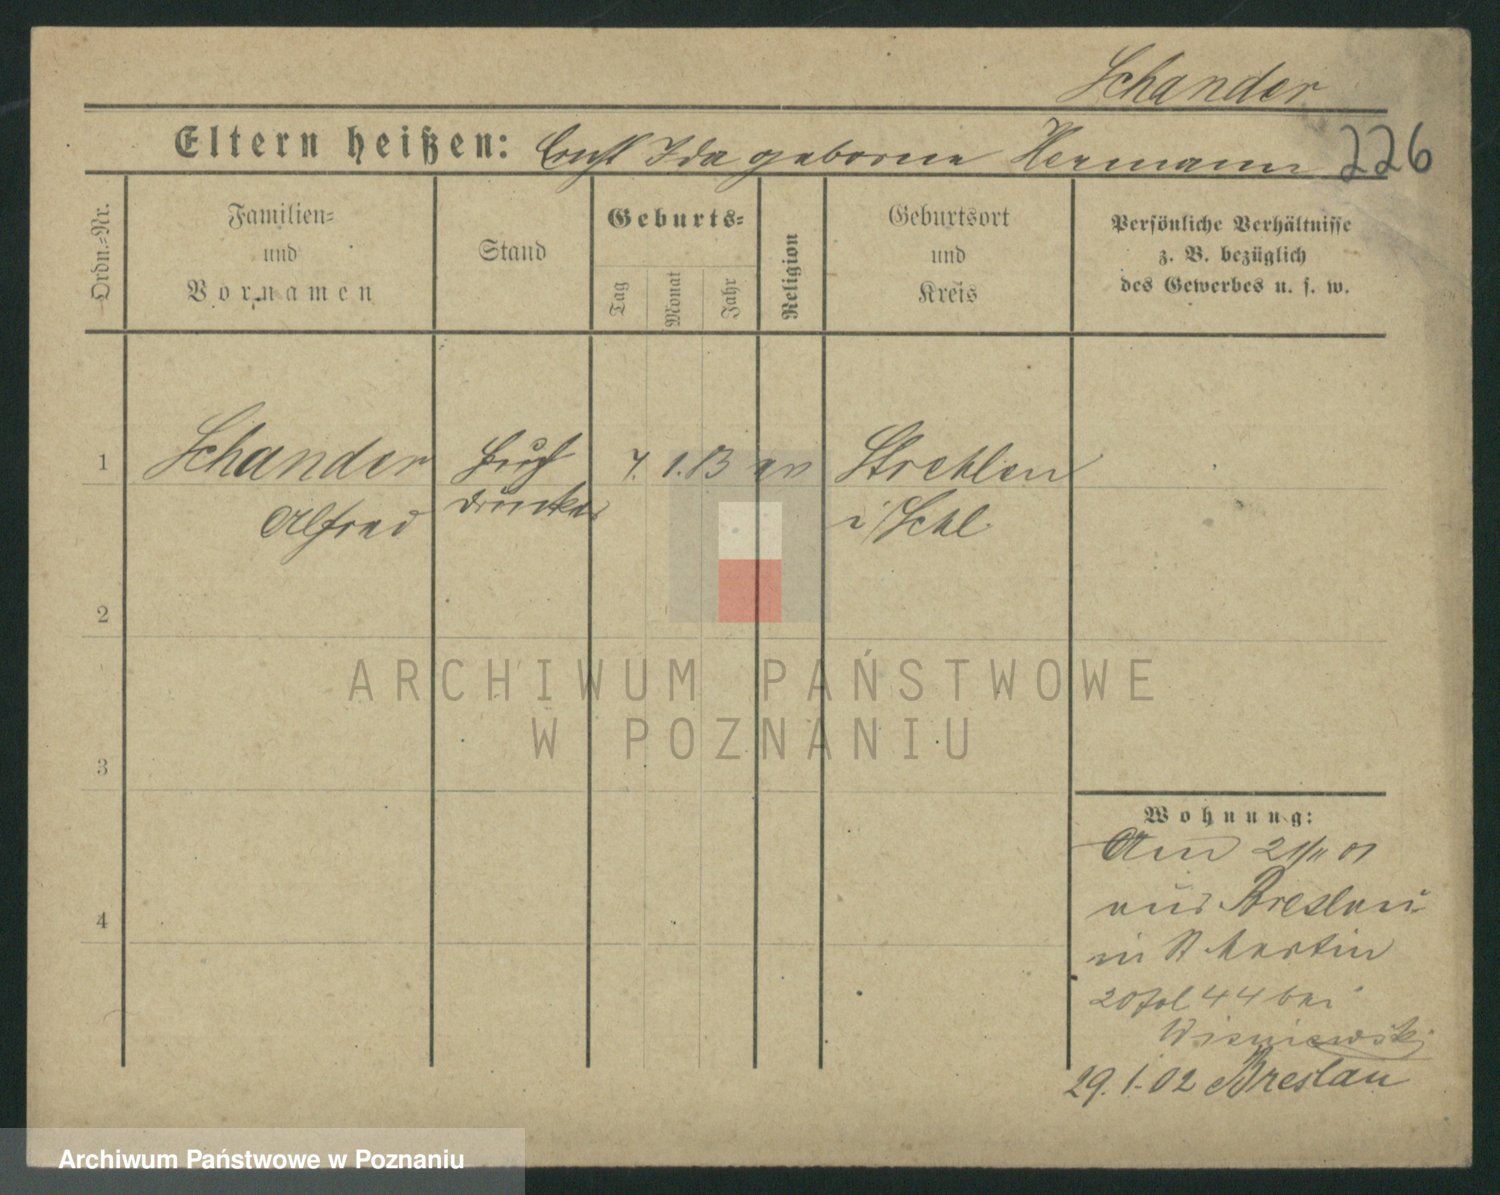 Schander
Eltern heißen: Ernst Ida geborne Hermann 226
Ordn.=Nr.
Familien=
und
Vornamen
Stand
Geburts=
Tag
Monat
Jahr
Religion
Geburtsort
und
Kreis
Persönliche Verhältnisse
z. B. bezüglich
des Gewerbes u. s. w.
1 Schander Buch 7. 1. 83 ev Strehlen
Alfred drucker i/Schl.
2
ARCHIWUM PAŃSTWOWE
W POZNANIU
3
Wohnung:
Am 21/11 01
aus Breslau
in St Martin
20 fol 44 bei
Wisniewski
4
29. 1. 02 Breslau
Archiwum Państwowe w Poznaniu